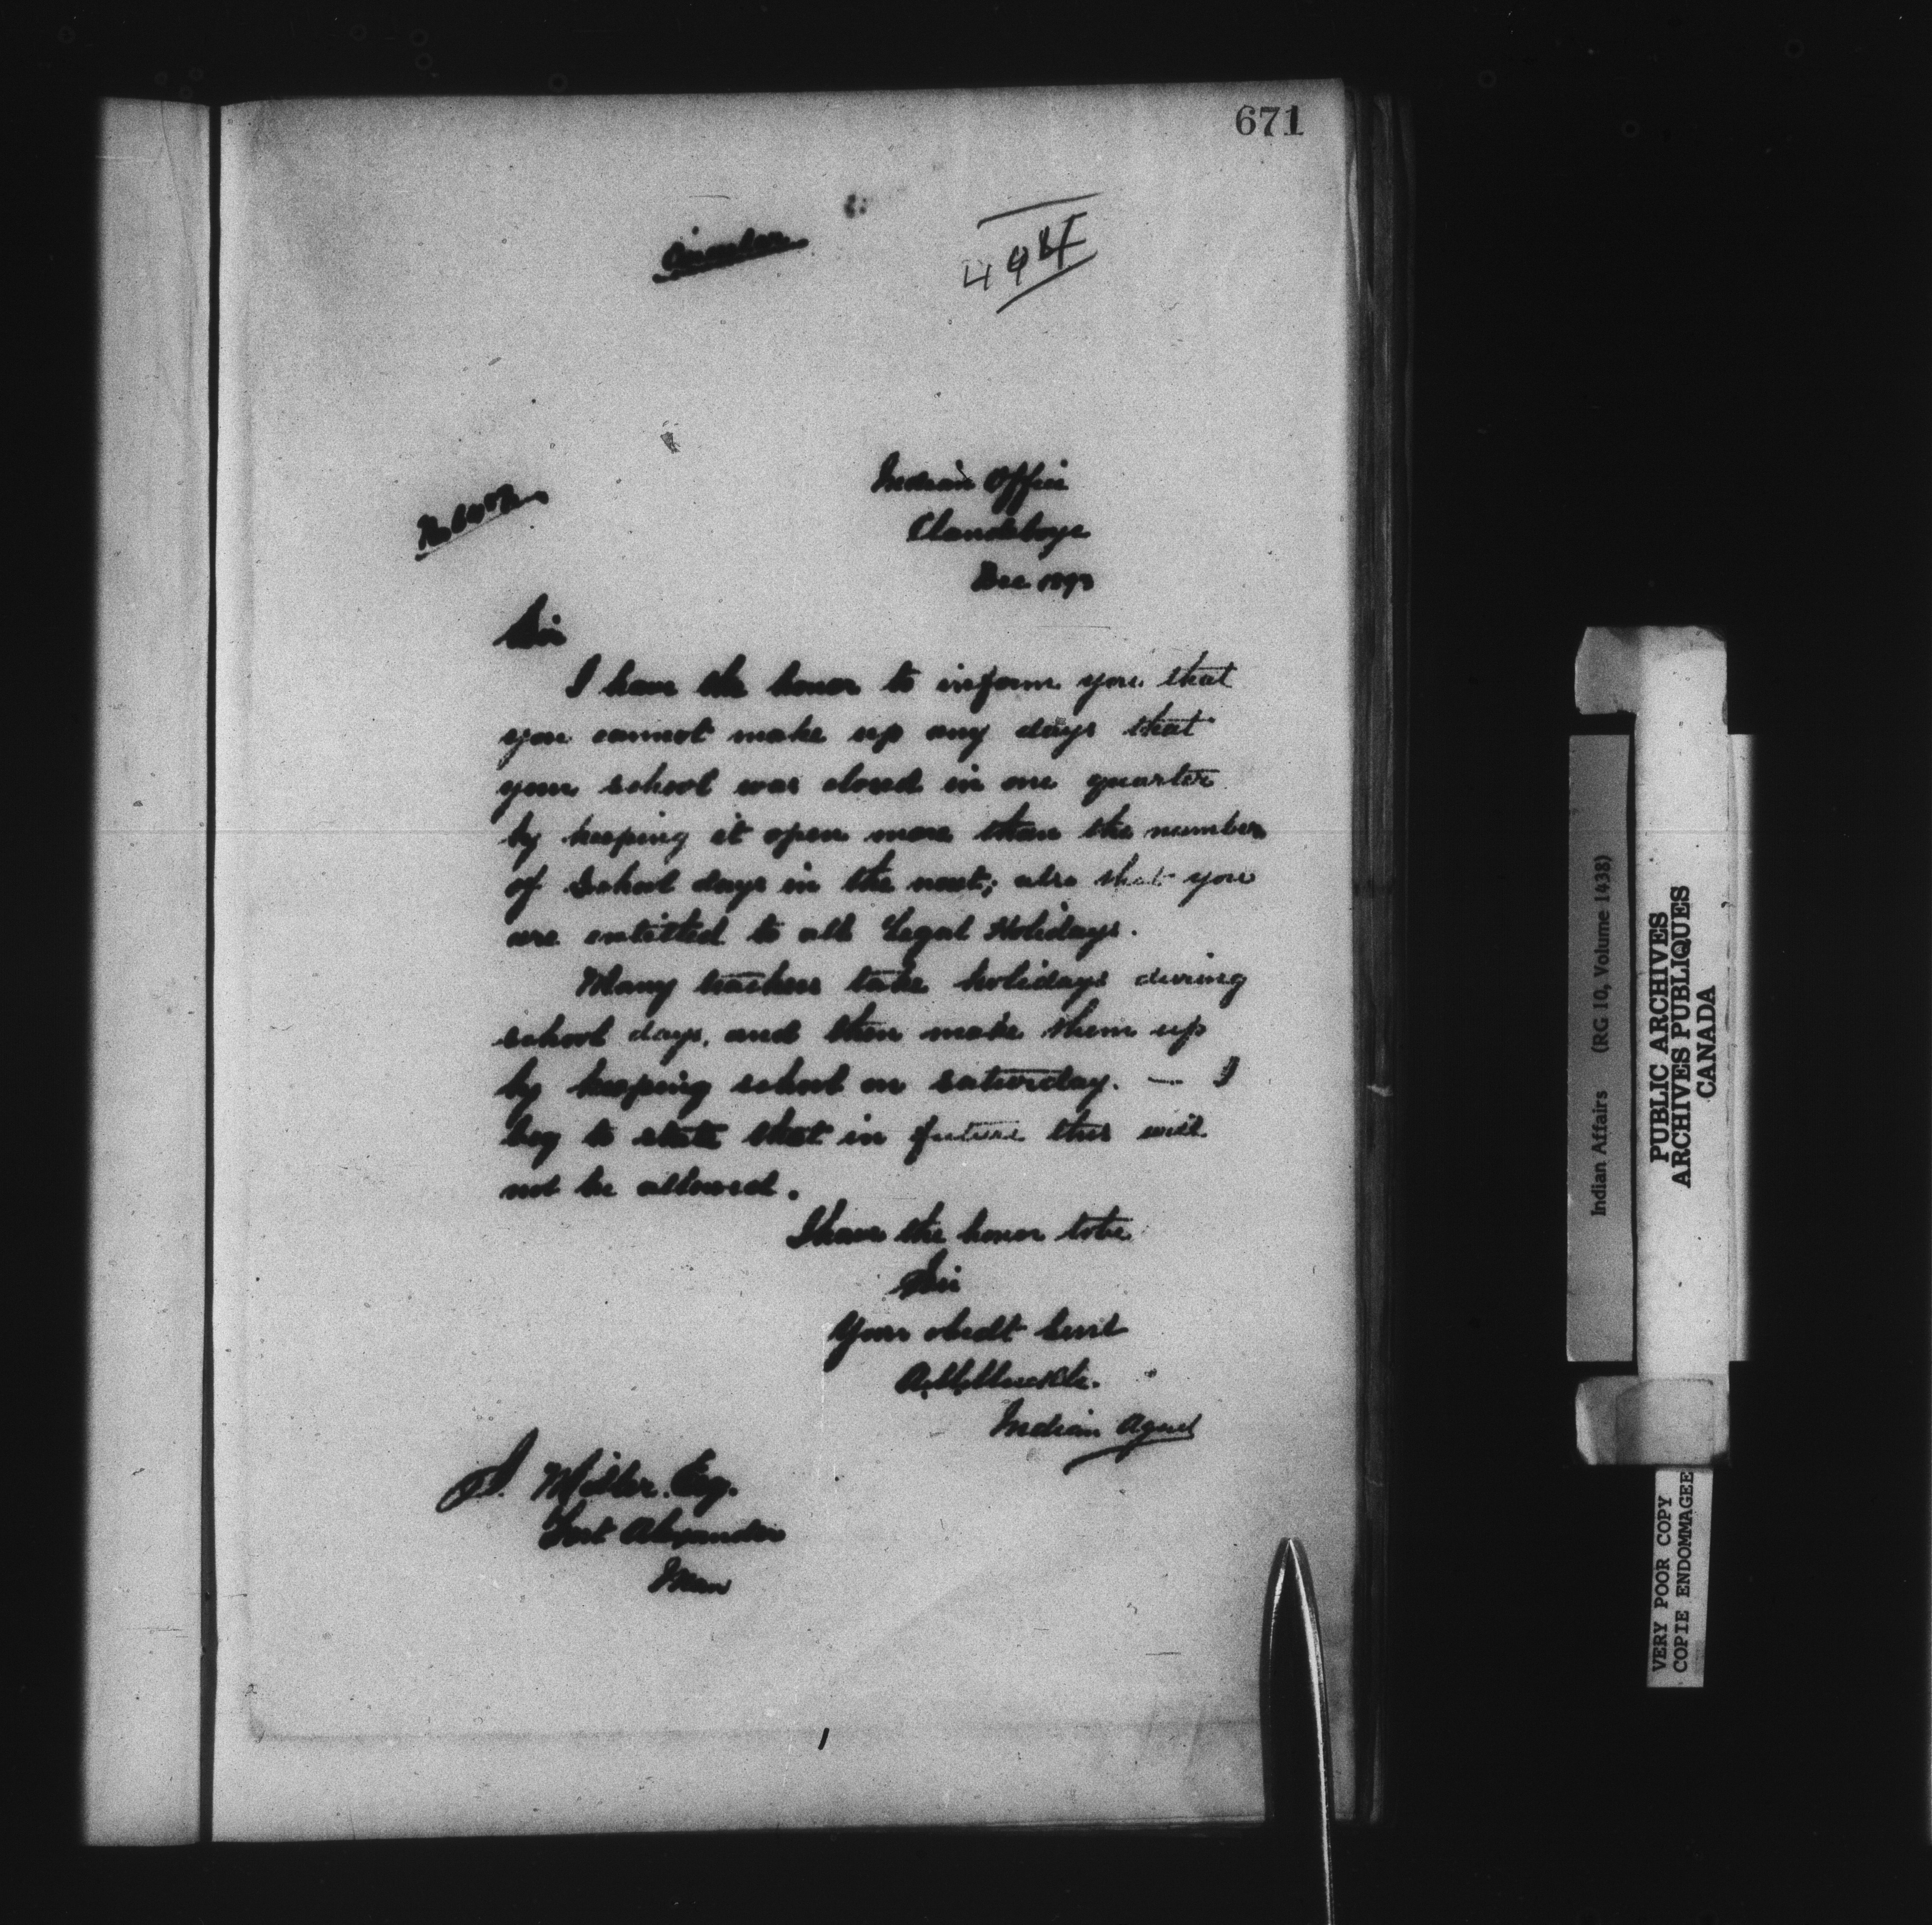 671
Circular
494
Indian Office
Clandeboye
Dec 1893
Sir
I have the honor to inform you that
you cannot make up any days that
your school was closed in one quarter
by keeping it open more than the number
of School days in the next; also that you
are entitled to all Legal Holidays.
Many teachers take holidays during
school days, and then make them up
by keeping school on saturday. — I
beg to state that in future this will
not be allowed.
I have the honor to be
Sir
Your obedt Servt
Indian Agent
Miller. Esq.
Fort Alexander
Man
Indian Affairs (RG 10, Volume 1438)
PUBLIC ARCHIVES
ARCHIVES PUBLIQUES
CANADA
VERY POOR COPY
COPIE ENDOMMAGEE